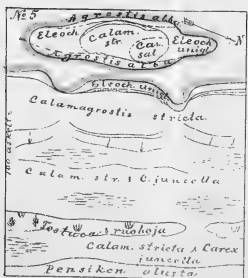 No 5
Agrostis alba
Eleoch.
Calam.
str.
Car.
sal.
Eleoch
unigl
N
Agrostis alba
Eleoch. unigl.
Calamagrostis
stricta.
100 askelta
Calam. str. & C. juncella
Festucoa & ruohoja
Calam. stricta & Carex
juncella
Pensikon alusta.